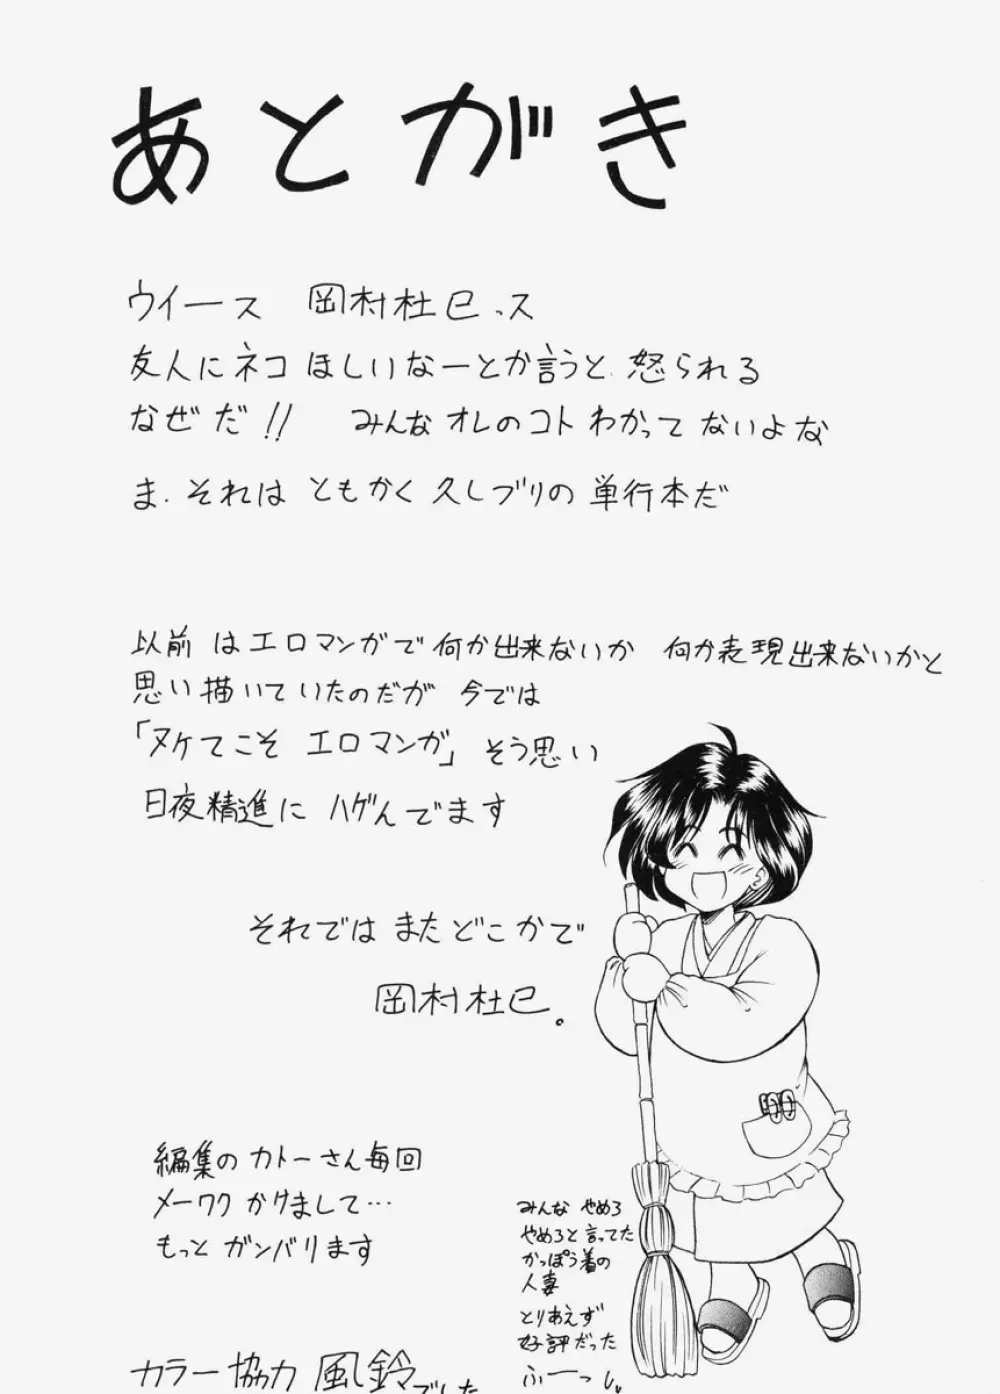 あとがき
ウイース 岡村杜巳っス
友人にネコ ほしいなーとか言うと、怒られる
なぜだ!! みんなオレのコトわかってないよな
ま、それは ともかく 久しブリの 単行本だ
以前 はエロマンガで何か出来ないか 何か表現出来ないかと
思い描いていたのだが 今では
「ヌケてこそ エロマンガ」そう思い
日夜精進に ハゲんでます
それでは またどこかで
岡村杜巳。
編集の カトーさん毎回
メーワク かけまして…
もっと ガンバります
みんな やめろ
やめろと 言ってた
かっぽう着の
人妻
とりあえず
好評だった
ふーっし
カラー協力 風鈴でした